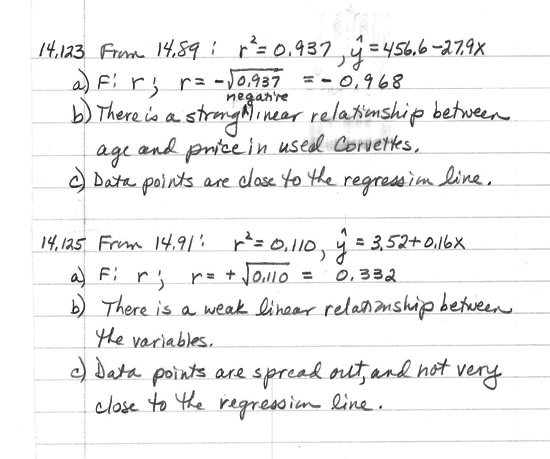 14.123 From 14.89: r²=0.937, ŷ=456.6-27.9x
a) F: r; r= -√0.937 = -0.968
negative
b) There is a strong linear relationship between
age and price in used Corvettes.
c) Data points are close to the regression line.
14.125 From 14.91: r²=0.110, ŷ=3.52+0.16x
a) F: r; r= +√0.110 = 0.332
b) There is a weak linear relationship between
the variables.
c) Data points are spread out, and not very
close to the regression line.